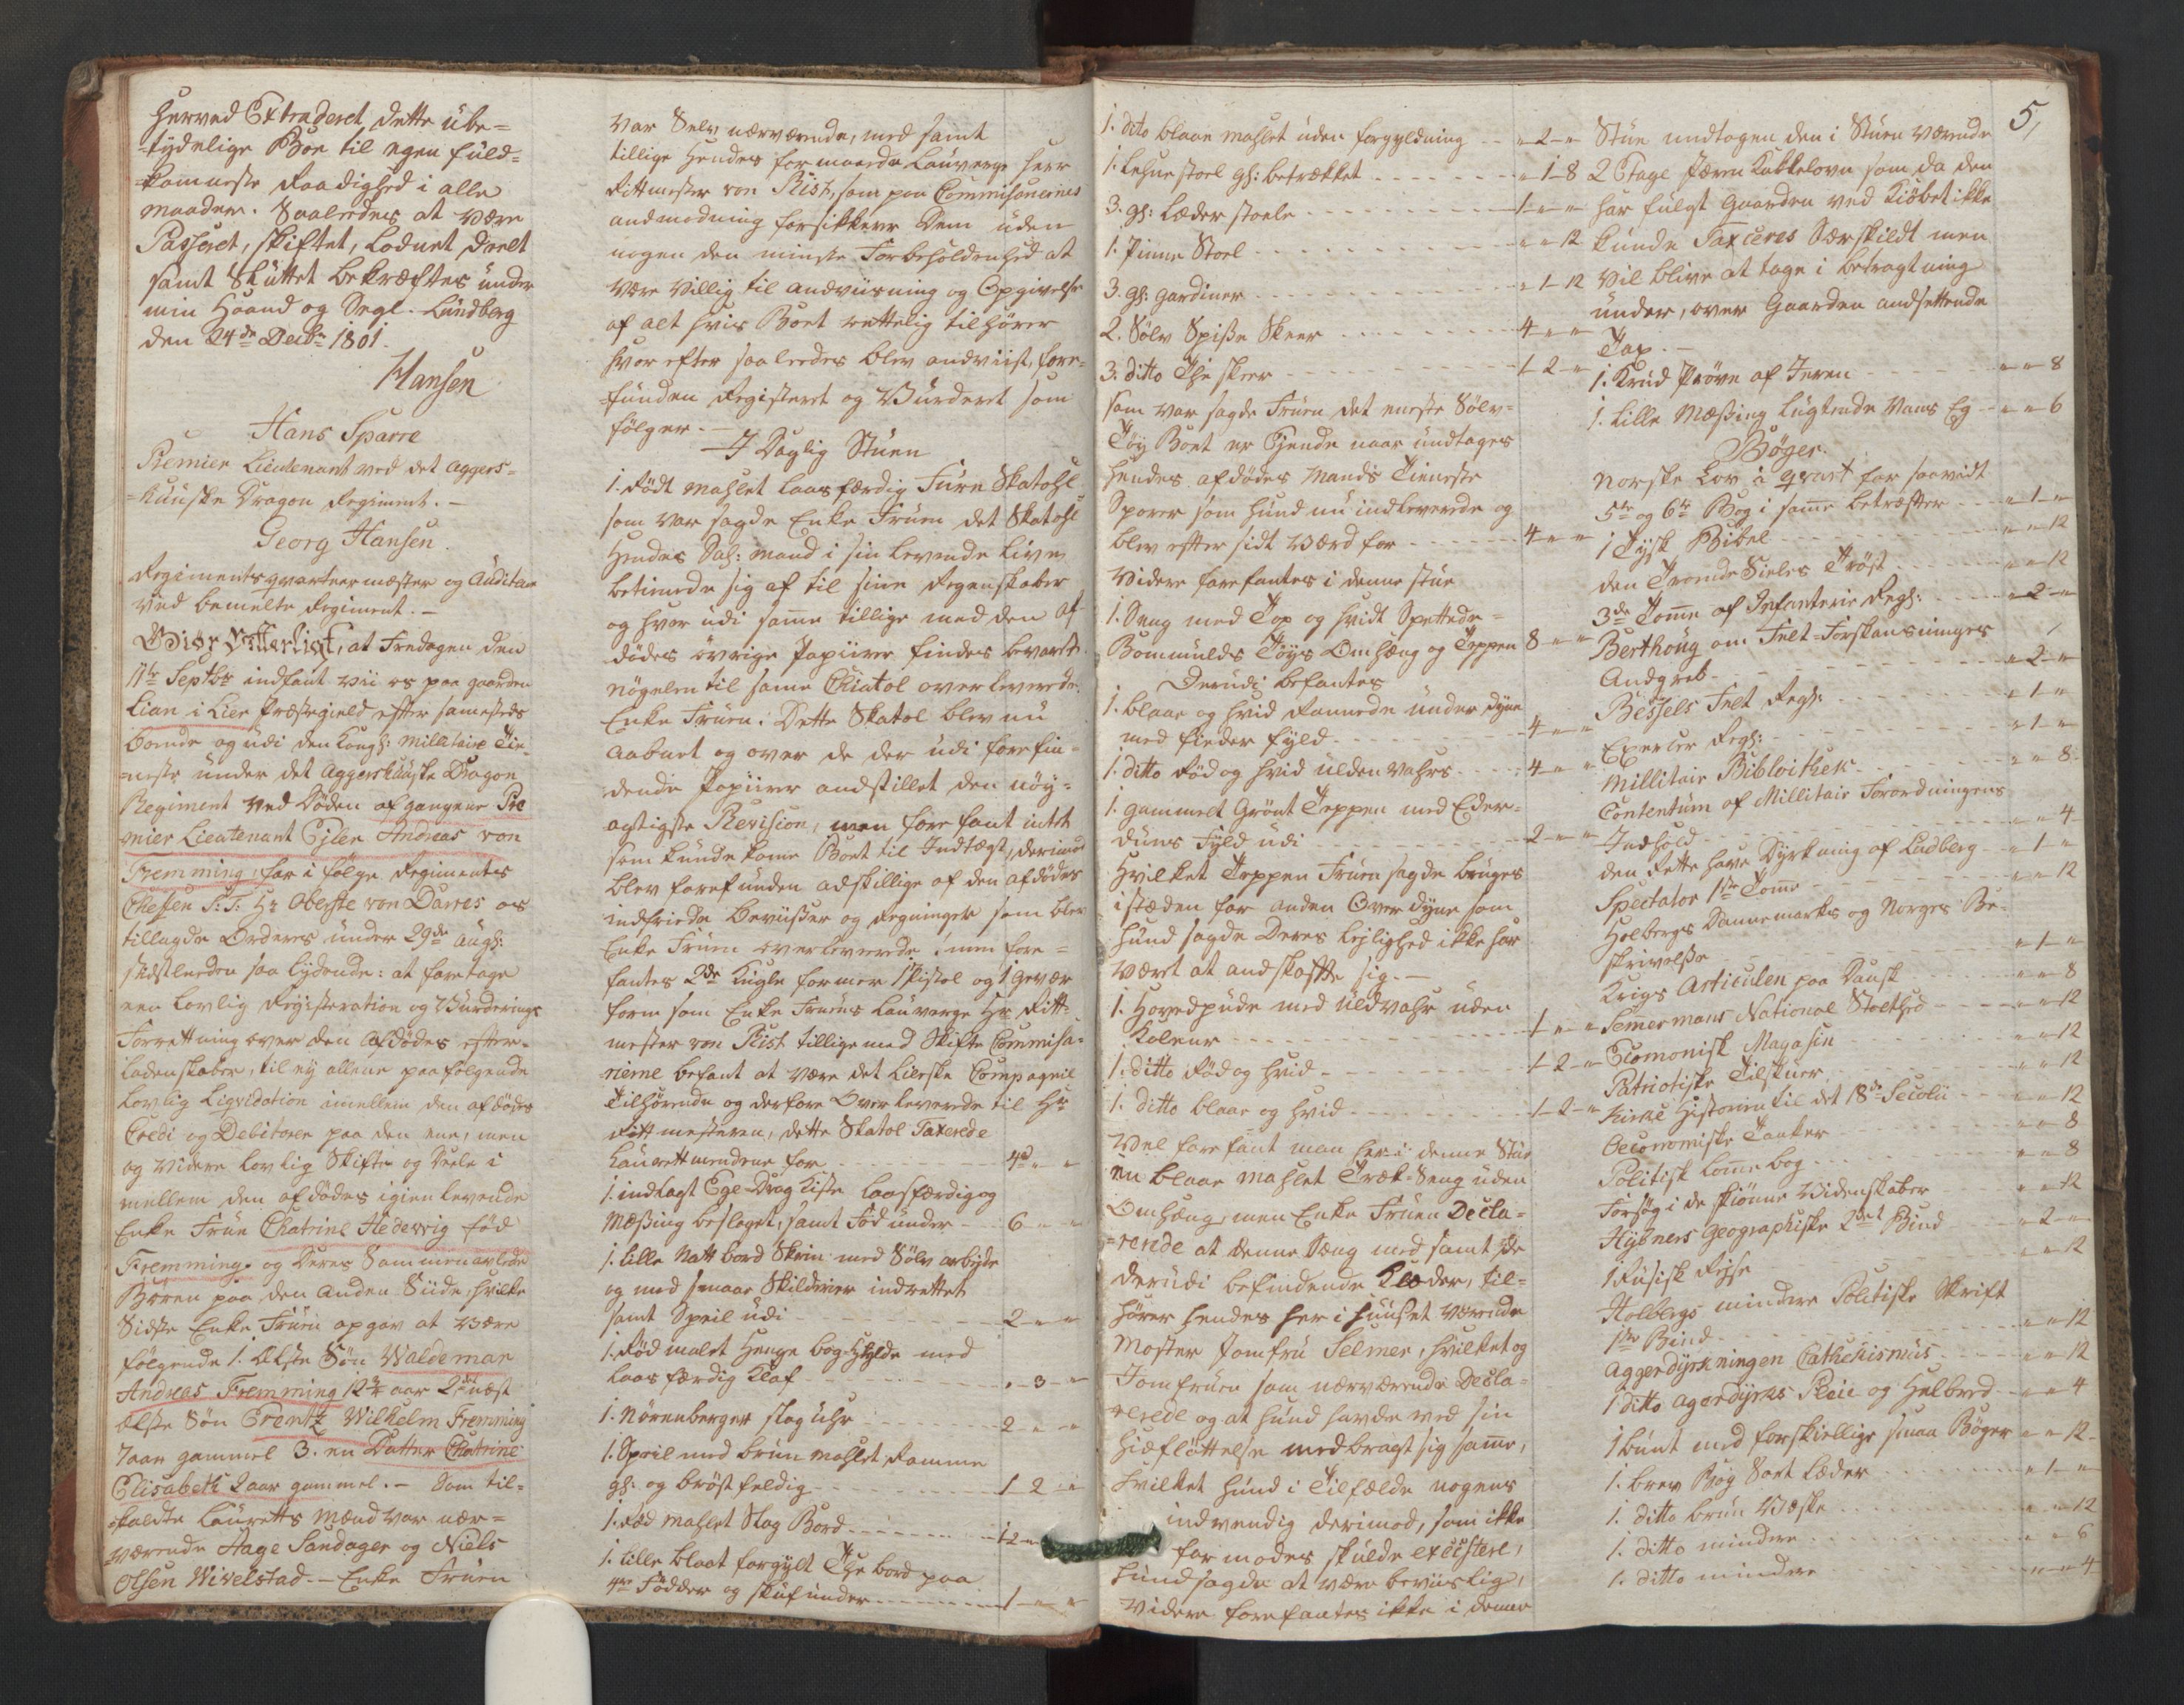 herved Extraderet dette ube=
=tydelige Boe til egen fuld=
=komneste Raadighed i alle
maader. Saaledes at være
Passeret, skiftet, lodnet deelt
samt Sluttet bekræftes under
min Haand og Segl. Lundberg
den 24de Decbr 1801.
Hansen
Hans Sparre
Premier Lieutenant ved det aggers=
=huuske Dragon Regiment. –
Georg Hansen.
Regimentsqvarteermester og Auditeur
ved bemelte Regiment. –
Giør Vitterligt, at Fredagen den
11te Septbr indfant vii os paa gaarden
Lian i Lier Præstegield efter sammesteds
boende og udi den Kongl: Millitaire Tie=
=neste under det Aggershuuske Dragon
Regiment ved Døden afgangne Pre
mier Lieutenant Ejler Andreas von
Fremming, for i følge Regimentes
Cheffen S:T: Hr Oberste von Darres os
tillagde Ordres under 29de Augs:
sidstleeden saa lydende: at foretage
een lovlig Registeration og Vurderings
Forretning over den Afdødes efter=
ladenskaber, til ey allene paafølgende
Lovlig Liqvidation imellem den afdødes
Credi og Debitorer paa den ene, men
og videre lovlig Skifte og Deele i
mellem den afdødes igien levende
Enke Frue Chatrine Hedevig fød
Fremming og Deres Sammenavlede
Børen paa den anden Siide, hvilke
Sidste Enke Fruen opgav at være
følgende 1. ælste Søn Waldemar
Andreas Fremming 12 3/4 aar 2det næst
ælste Søn Frentz Wilhelm Fremming
7aar gammel 3. en Datter Chatrine
Elisabeth 2 aar gammel. – Som til=
=kaldte Lauretts mænd var nær=
værende Aage Sandager og Niels
Olsen Wivelstad. – Enke Fruen
var Selv nærværende, med samt
tillige Hendes formaaede Lauverge Herr
Rittmester von Rist, som paa Commisonerernes
andmodning forsikkrer Dem uden
nogen den minste Forbeholdenhed at
være villig til andviisning og Opgivelse
af alt hvis Boet rettelig tilhører
hvor efter saaleedes blev andviist, fore=
=funden Registeret og Vurderet som
følger. –
I Daglig Stuen
1. Rødt mahlet laasfærdig Furu Skatohl
som var sagde Enke Fruen det Skatohl
Hendes Sal: mand i sin levende Live
betiente sig af til sine Regenskaber
og hvor udi samme tillige med den af
dødes øvrige Papiirer findes bevaret
nøgelen til samme Chatol overleverede
Enke Fruen: Dette Skatol blev nu
aabnet og over de der udi forefin=
dende Papiirer andstillet den nøy=
agtigste Revision, men fore fant intet
som kunde komme Boet til Indtægt, derimod
blev forefunden adskillige af den afdødes
indfriede Beviiser og Regninger som blev
Enke Fruen overleverede, men fore=
fantes 2de Kugle former 1 Pistol og 1 gevær
form som Enke Fruens Lauverge Hr Ritt=
mester von Rist tillige med Skifte Commisa=
rierne befant at være det Lierske Compagnie
Tilhørende og derfore Overleverede til Hr
Rittmesteren, dette Skatol Taxerede
Laurettmendene for 4d " "
1. indlagt Ege-Drag Kiste laasfærdig og
Mæssing beslaget, samt Fod under – 6 " "
1. lille Natt bord Skrin med Sølv arbejde
og med smaae Skilderier indrettet
samt Speil udi 2 " "
1. Rød malet Henge bog-Hylde med
Laasfærdig Klaf " 3 "
1. Nørenberger slag Uhr 2 " "
1. Speil med brun mahlet Ramme
gl: og brøstfeldig 1 2 "
1. Rød mahlet Slag Bord 1 2 "
1. lille blaat forgylt The bord paa
4re Fødder og skuf under 1 " "
1. dito blaae mahlet uden forgyldning " 2 "
1. Lehnestoel gl: betrækket " 1 8
3. gl: Læder stoele 1 " "
1. Pinne Stoel " " 12
3. gl: Gardiner " 1 12
2. Sølv Spisse Skeer 4 " "
3. ditto The skeer 1 2 "
som var sagde Fruen det eneste Sølv=
Tøy Boet er Ejende naar undtages
hendes afdødes Mands Tieneste
Sporer som hund nu indleverede og
blev efter sidt Værd for 4 " "
Videre forefantes i denne stue
1. Seng med Top og hvidt Spettede=
Bommulds Tøys Omhæng og Teppen 8 " "
Derudi befantes
1. blaae og hvid Rannede under dyne
med Fieder fyld 4 " "
1. ditto Rød og hvid ulden vahrs 4 " "
1. gammelt Grønt Teppen med Eder=
duns Fyld udi 2 " "
Hvilket Teppen Fruen sagde bruges
isteden for anden Over dyne som
hund sagde Deres lejlighed ikke har
været at andskaffe sig. –
1. Hovedpude med uldvahr uden
Koleur 1 " "
1. ditto Rød og hvid 1 2 "
1. ditto blaae og hvid 1 2 "
Vel forefant man her i denne Stue
en blaae mahlet Træk-Seng uden
Omhæng, men Enke Fruen Decla=
=rerede at denne Seng med samt de
derudi befindende Klæder, til=
hører hendes her i Huuset værende
Moster Jomfrue Selmer, hvilket og
Jomfruen som nærværende Decla=
rerede og at hund havde ved sin
hidfløttelse medbragt sig samme,
hvilket hund i Tilfælde nogens
indvendig derimod, som ikke
formodes skulde excistere,
hund sagde at være beviislig,
Videre forefantes ikke i denne
5,
Stue undtagen den i Stuen værende
2 Etage Jæren Kakkelovn som da den
har fulgt Gaarden ved Kiøbet ikke
kunde Taxceres Særskildt men
vil blive at tage i betragtning
under, over Gaarden andsettende
Tax. –
1. Krud Prøve af Jeren " " 8
1. lille Messing Lugtende Vans Eg " " 6
Bøger.
Norske Lov i qvart for saavidt
5te og 6te Bog i samme betreffer " 1 "
1 Tysk Bibel " " 12
den Fromde Sieles Trøst " " 12
3de Tomme af Infanterie Regl: " 2 "
Berthoug om Felt-Forskansninger
Andgreb " 2 "
Bessels Felt Regl: " 1 "
Exercer Regl: " 1 "
Millitair Bibloithek " " 8
Contentum af Millitair Forordningens
Indhold " " 4
den Rette have Dyrkning af Ladberg " 1 "
Spectator 1ste Tomme " " 12
Holbergs Dannemarks og Norges Be=
skrivelse " 1 "
Krigs Articulen paa Dansk " " 8
Semermans National Stolthed " " 12
Ecomonisk Magasin " " 12
Patriotiske Tilskuer " " 12
Kirke Historien til det 18de Seculii " " 12
Oeconomiske Tanker " " 8
Politisk lomme bog " " 8
Forsøg i de skiønne Videnskaber " " 12
Hybners Geographiske 2det Bind " 2 "
1 Rusisk Rejse " " 12
Holbergs mindere Politiske Skrift
1ste Bind " " 12
Aggerdyrkningen Cathekismus " " 12
1 ditto agerdyrkes Pleie og Helbred " " 4
1 bunt med forskiellige smaa Bøger " " 12
1. brev Bog Sort Læder " 1 "
1. ditto brun Væske " " 12
1. ditto mindere " " 6
1. ditto mindere " " 4